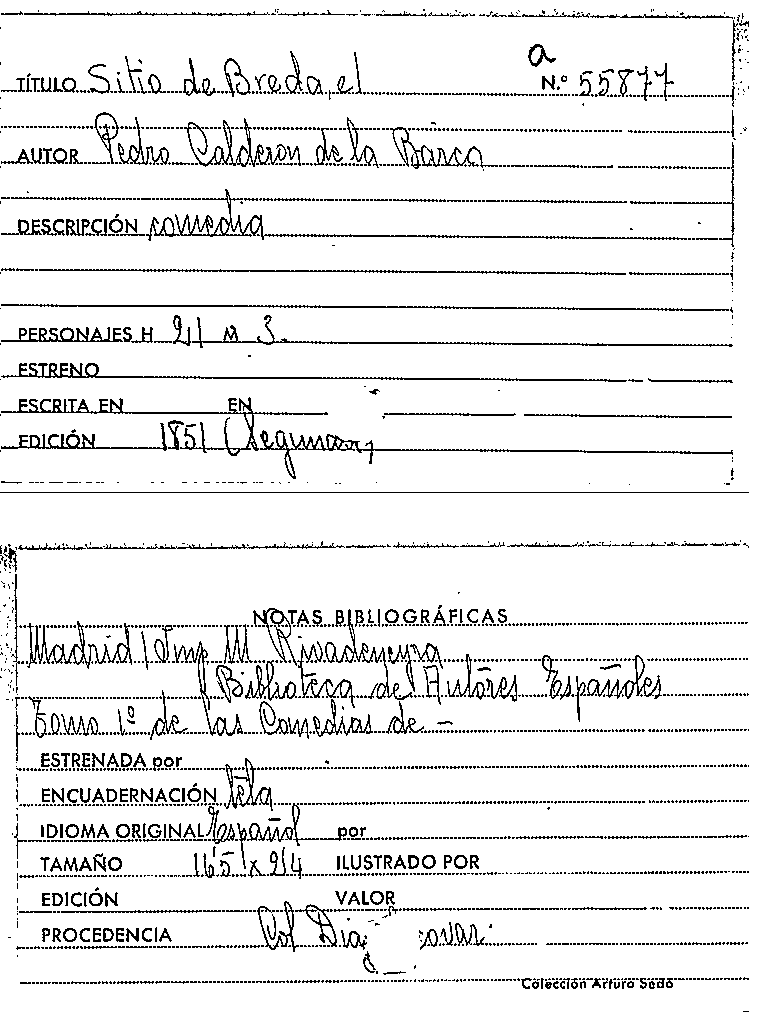 a
TÍTULO Sitio de Breda, el N.º 55877
AUTOR Pedro Calderon de la Barca
DESCRIPCIÓN comedia
PERSONAJES H 21 M 3.
ESTRENO
ESCRITA EN EN
EDICIÓN 1851
NOTAS BIBLIOGRÁFICAS
Madrid / Imp M Rivadeneyra
Biblioteca de Autores Españoles
Tomo 1º de las Comedias de -
ESTRENADA por
ENCUADERNACIÓN tela
IDIOMA ORIGINAL Español por
TAMAÑO 16'5 x 24 ILUSTRADO POR
EDICIÓN VALOR
PROCEDENCIA Col
Colección Arturo Sedó